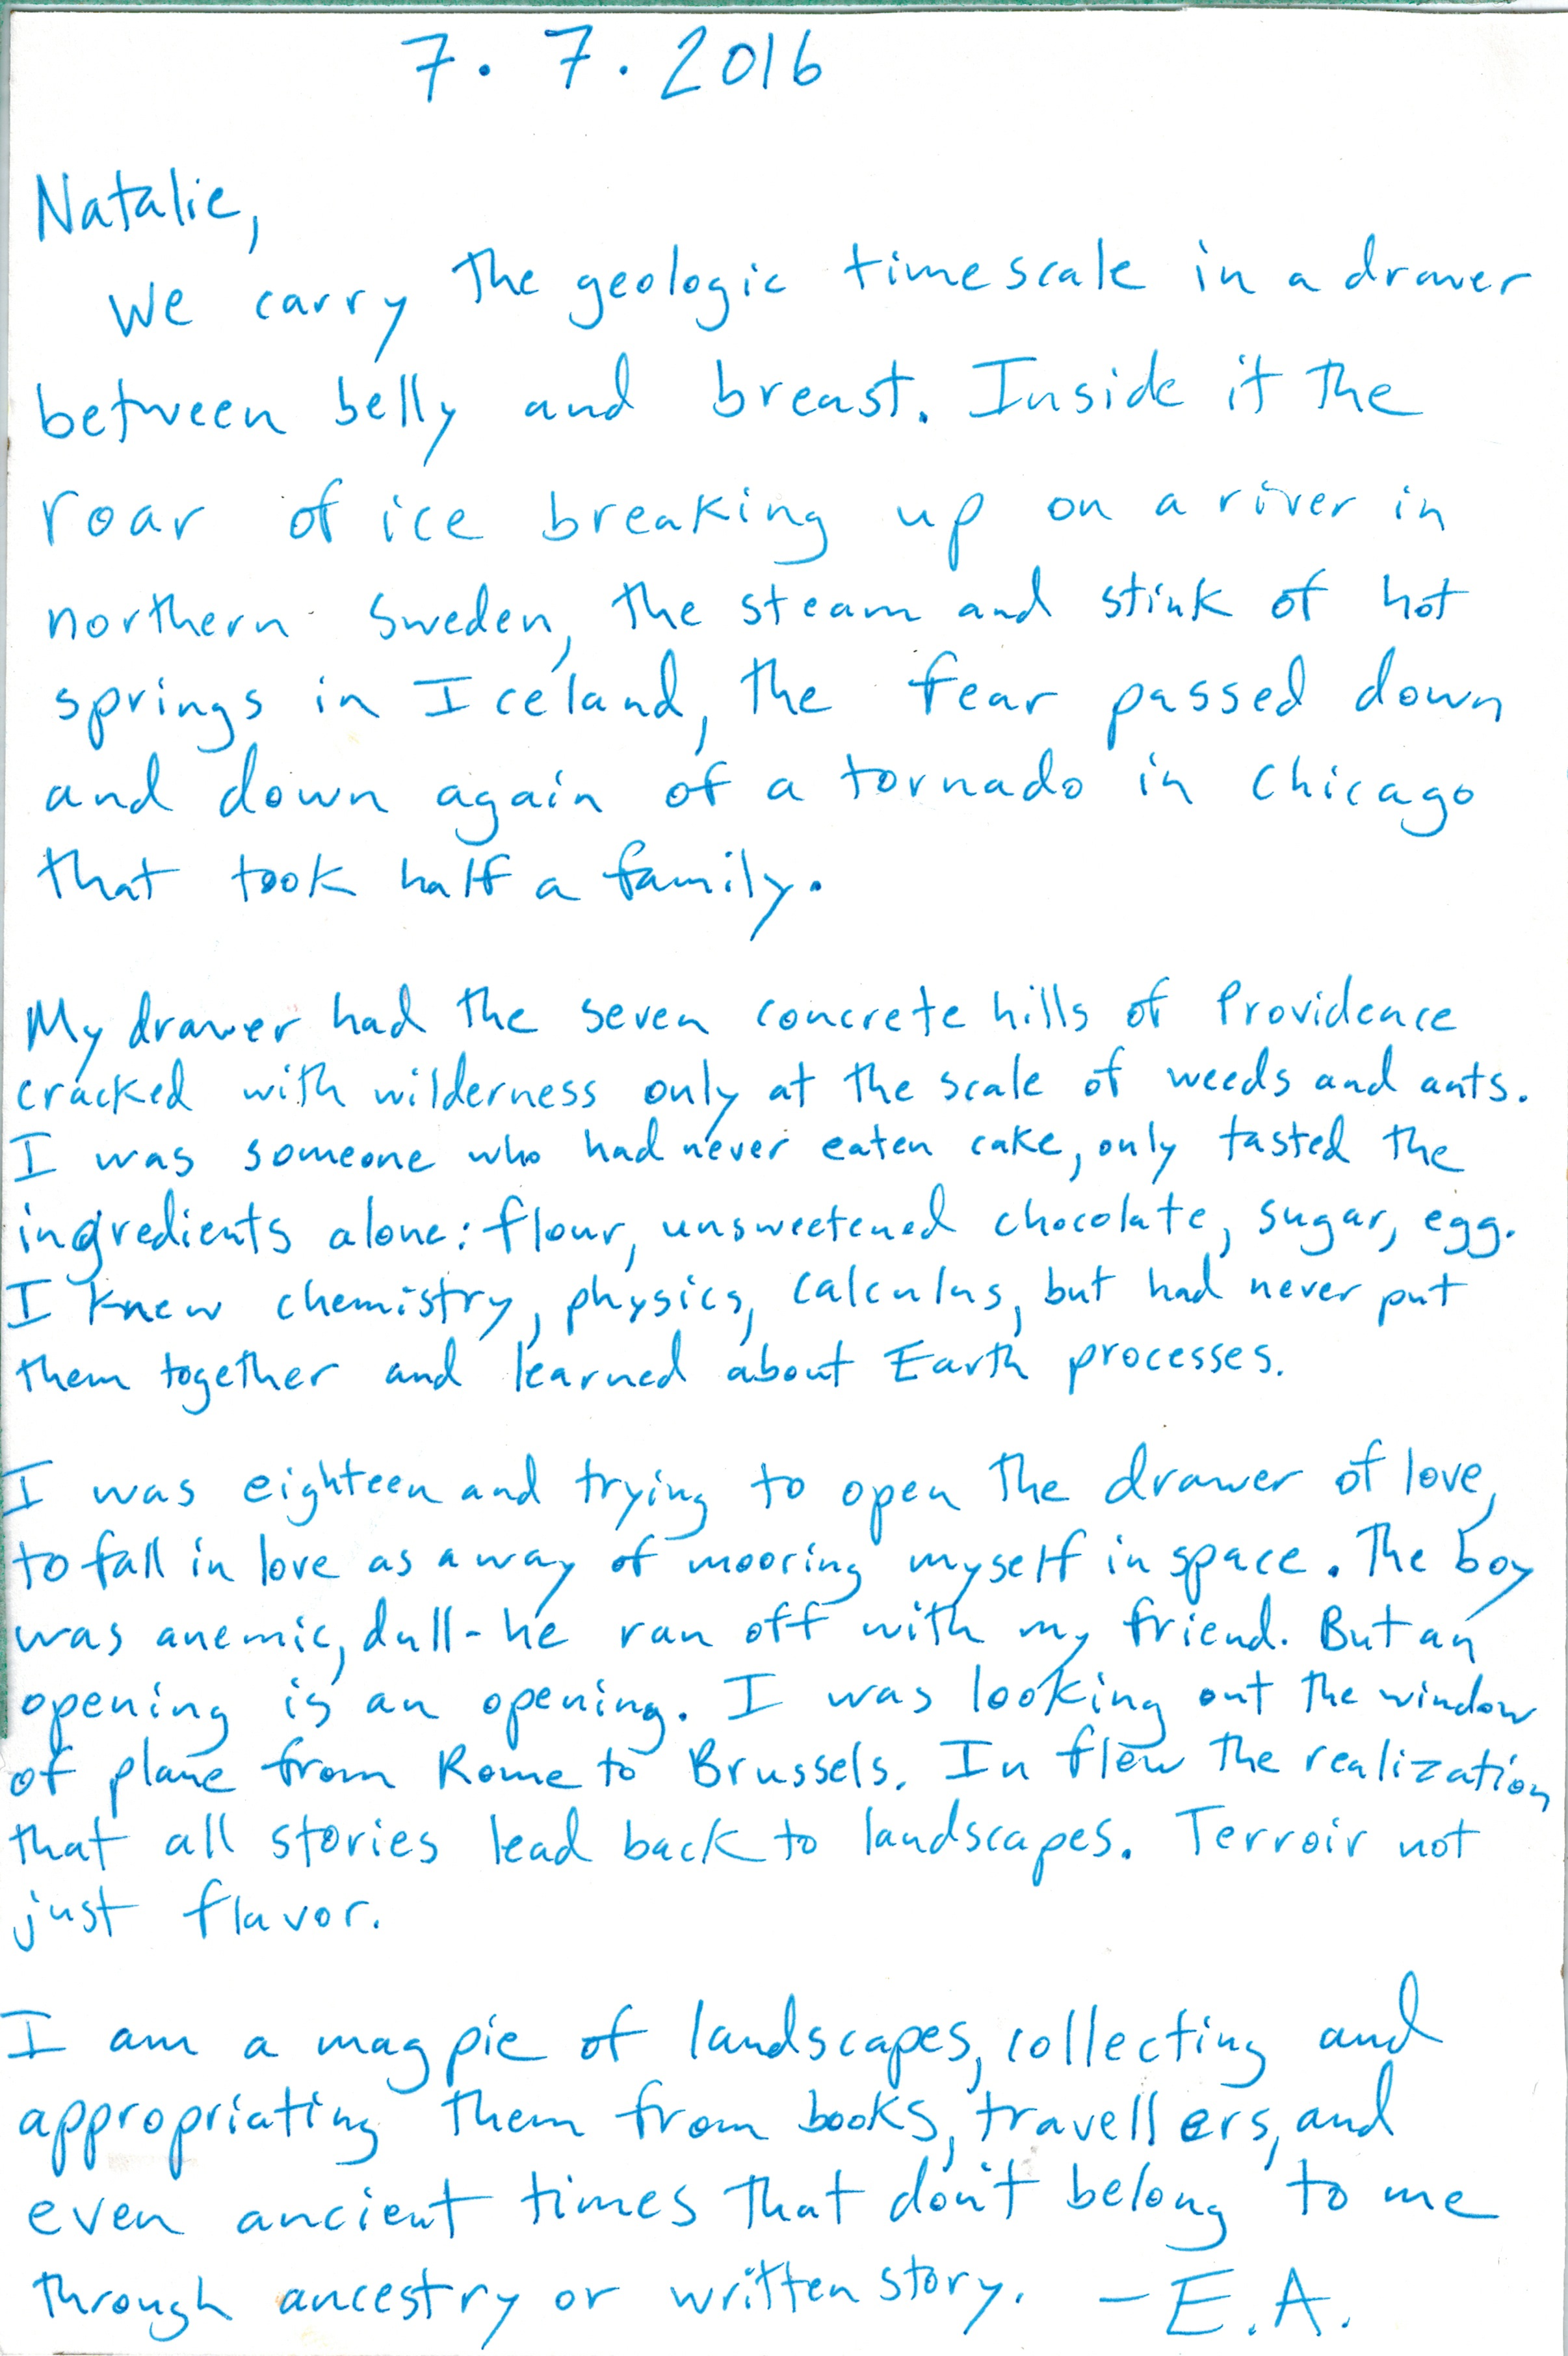 7. 7. 2016
Natalie,
We carry the geologic timescale in a drawer
between belly and breast. Inside it the
roar of ice breaking up on a river in
northern Sweden, the steam and stink of hot
springs in Iceland, the fear passed down
and down again of a tornado in Chicago
that took half a family.
My drawer had the seven concrete hills of Providence
cracked with wilderness only at the scale of weeds and ants.
I was someone who had never eaten cake, only tasted the
ingredients alone: flour, unsweetened chocolate, sugar, egg.
I knew chemistry, physics, calculus, but had never put
them together and learned about Earth processes.
I was eighteen and trying to open the drawer of love,
to fall in love as a way of mooring myself in space. The boy
was anemic, dull - he ran off with my friend. But an
opening is an opening. I was looking out the window
of plane from Rome to Brussels. In flew the realization
that all stories lead back to landscapes. Terroir not
just flavor.
I am a magpie of landscapes, collecting and
appropriating them from books, travellers, and
even ancient times that don't belong to me
through ancestry or written story. - E.A.